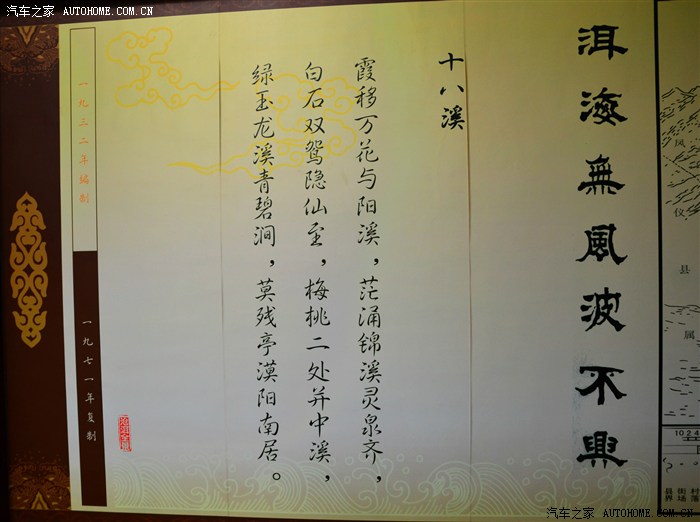 汽车之家 AUTOHOME.COM.CN
洱海無風波不興
十八溪
霞移万花与阳溪，茫涌锦溪灵泉齐，
白石双鸳隐仙至，梅桃二处并中溪，
绿玉龙溪青碧涧，莫残亭漠阳南居。
一九三二年编制
一九七一年复制
凤仪县属
1024
县界
街场
村落
汽车之家 AUTOHOME.COM.CN